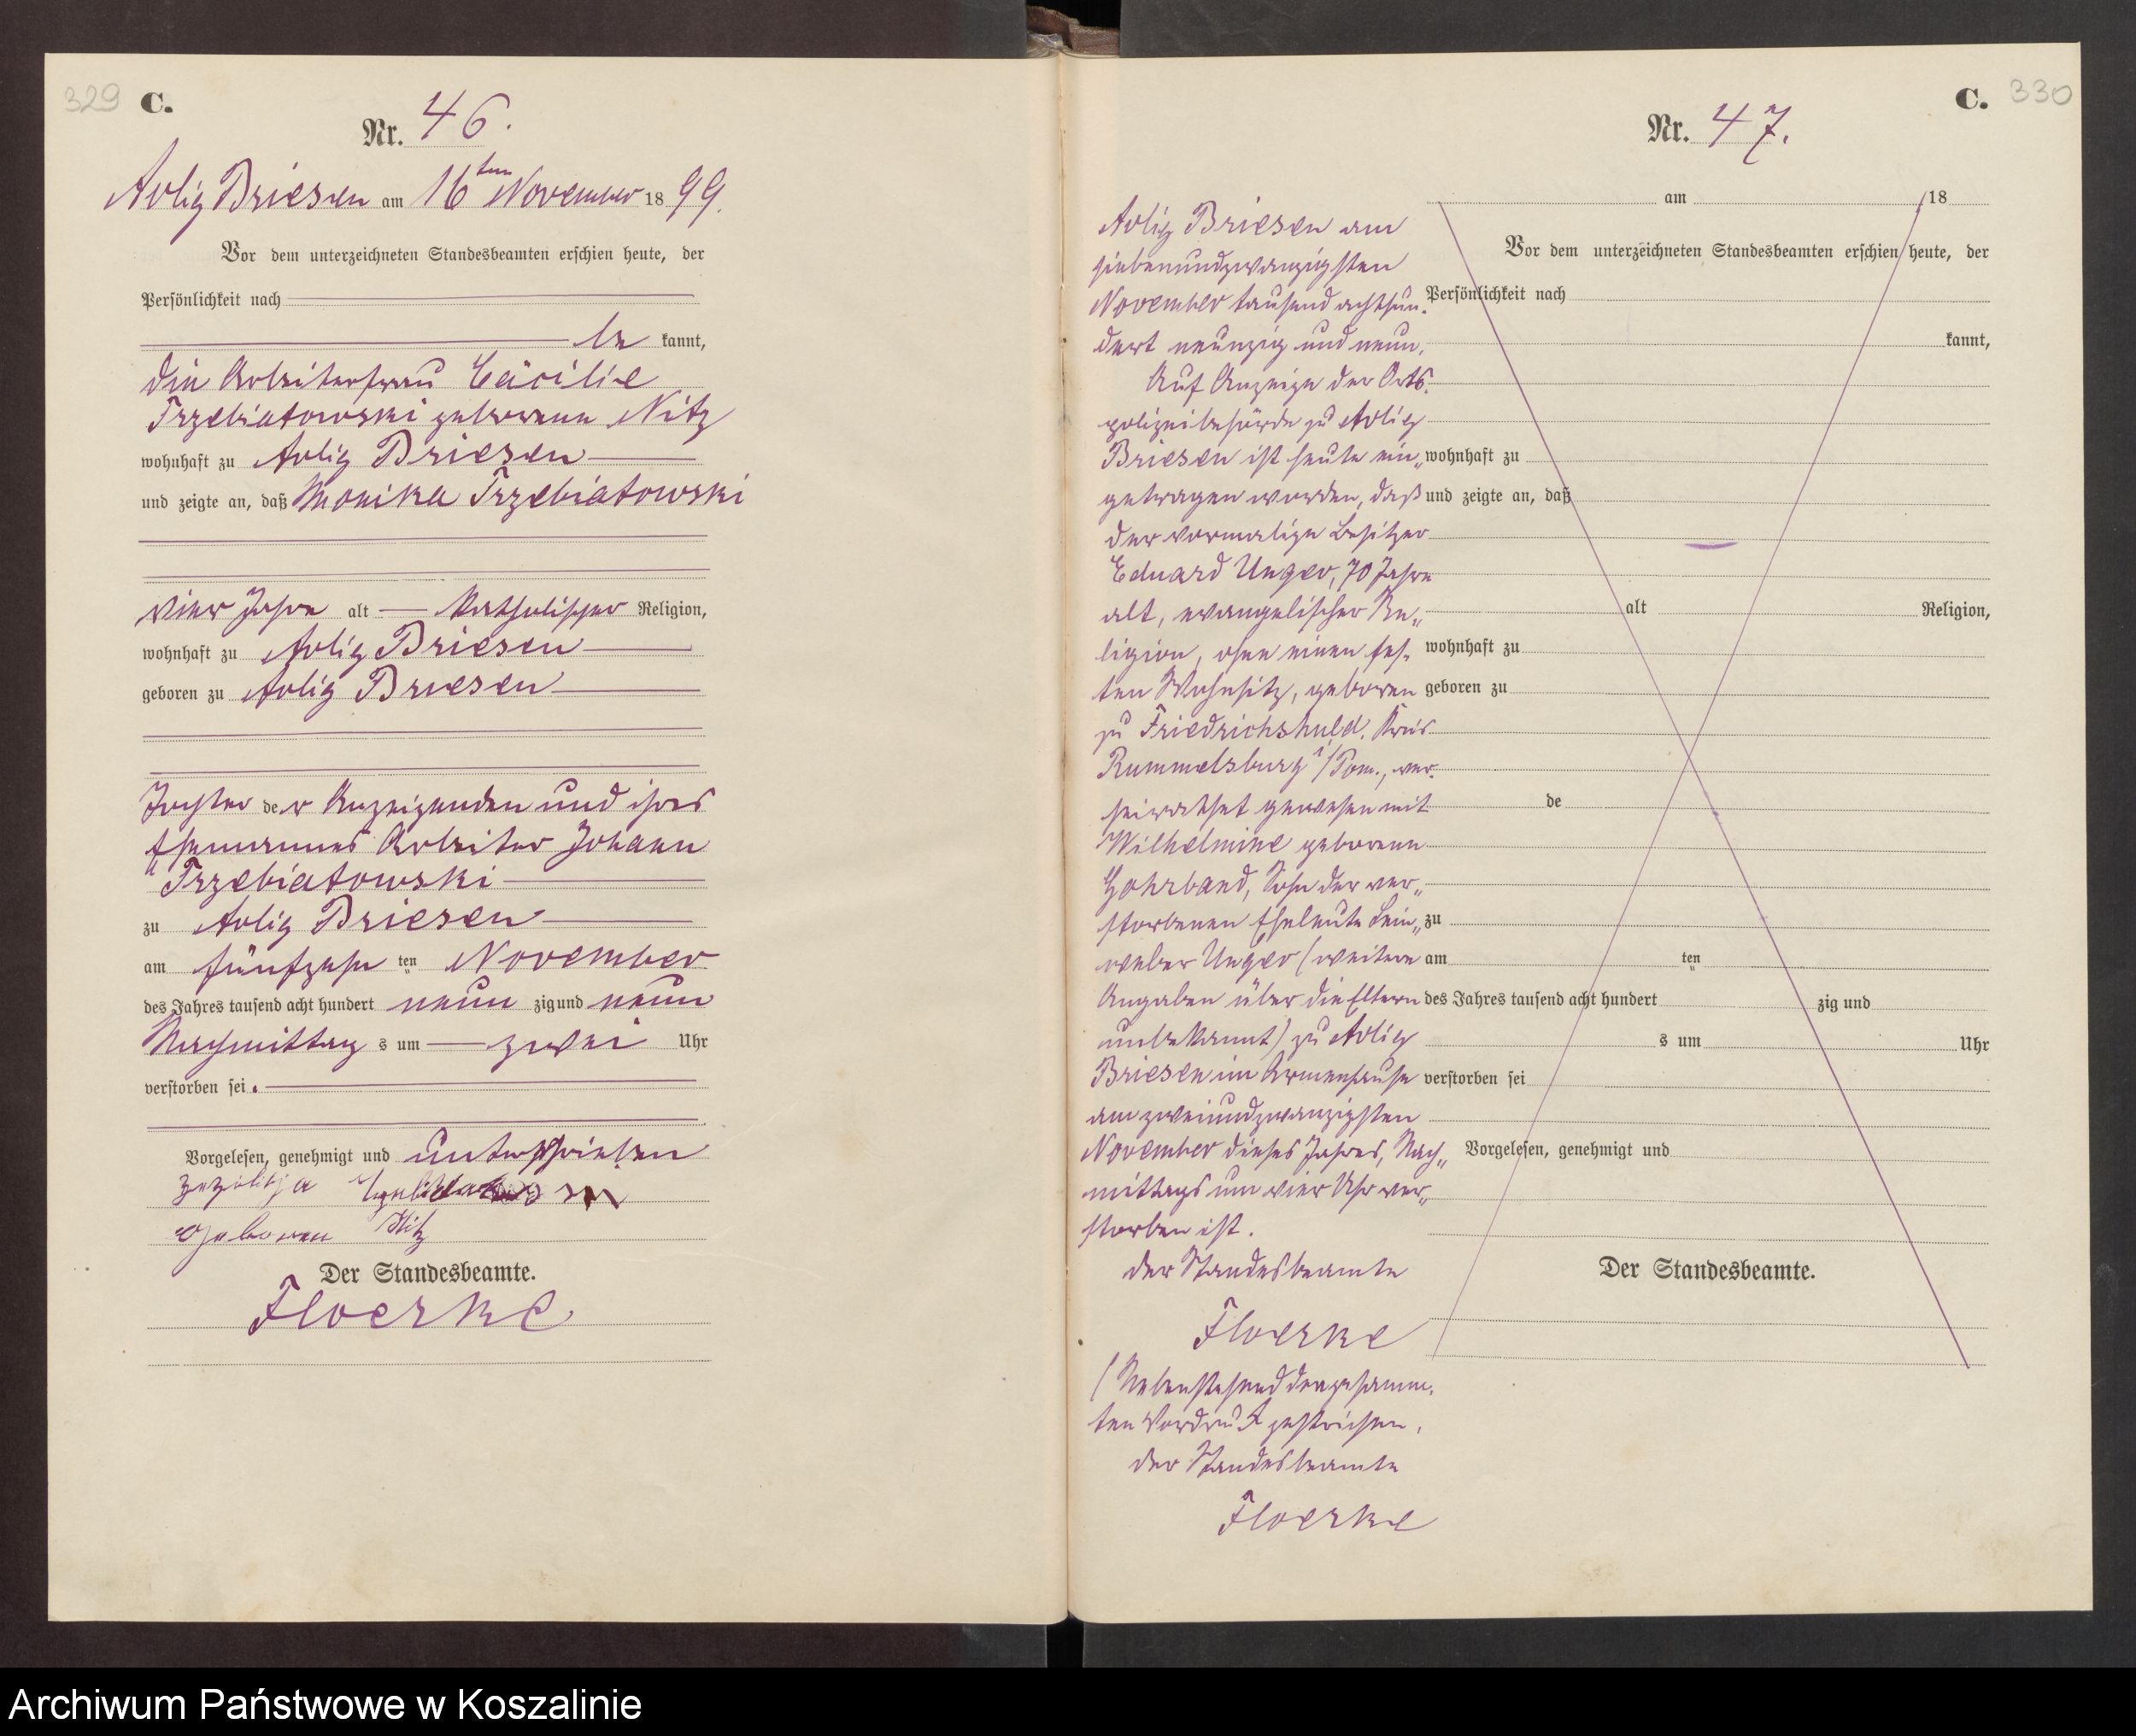 329 C.
Nr. 46.
Adlig Briesen am 16ten November 1899.
Vor dem unterzeichneten Standesbeamten erschien heute, der
Persönlichkeit nach
be kannt,
die Arbeiterfrau Cäcilie
Trzebiatowski geborene Nitz
wohnhaft zu Adlig Briesen
und zeigte an, daß Monika Trzebiatowski
vier Jahre alt katholischer Religion,
wohnhaft zu Adlig Briesen
geboren zu Adlig Briesen
Tochter der Anzeigenden und ihres
Ehemannes Arbeiter Johann
Trzebiatowski
zu Adlig Briesen
am fünfzehn ten November
des Jahres tausend acht hundert neun zig und neun
Nachmittag s um zwei Uhr
verstorben sei.
Vorgelesen, genehmigt und unterschrieben
Zezilija
geboren Nitz
Der Standesbeamte.
Floerke
C. 330
Nr. 47.
am 18
Vor dem unterzeichneten Standesbeamten erschien heute, der
Persönlichkeit nach
kannt,
wohnhaft zu
und zeigte an, daß
alt Religion,
wohnhaft zu
geboren zu
de
zu
am ten
des Jahres tausend acht hundert zig und
s um Uhr
verstorben sei
Vorgelesen, genehmigt und
Der Standesbeamte.
Adlig Briesen am
siebenundzwanzigsten
November tausend achthun-
dert neunzig und neun.
Auf Anzeige der Orts-
polizeibehörde zu Adlig
Briesen ist heute ein-
getragen worden, daß
der vormalige Besitzer
Eduard Unger, 70 Jahre
alt, evangelischer Re-
ligion, ohne einen fes-
ten Wohnsitz, geboren
zu Friedrichshuld, Kreis
Rummelsburg i/Pom., ver-
heirathet gewesen mit
Wilhelmine geborene
Gohrband, Sohn der ver-
storbenen Eheleute Lein-
weber Unger (weitere
Angaben über die Eltern
unbekannt) zu Adlig
Briesen im Armenhause
am zweiundzwanzigsten
November dieses Jahres, Nach-
mittags um vier Uhr ver-
storben ist.
Der Standesbeamte
Floerke
(Nebenstehend den gesamm-
ten Vordruck gestrichen.
Der Standesbeamte
Floerke
Archiwum Państwowe w Koszalinie